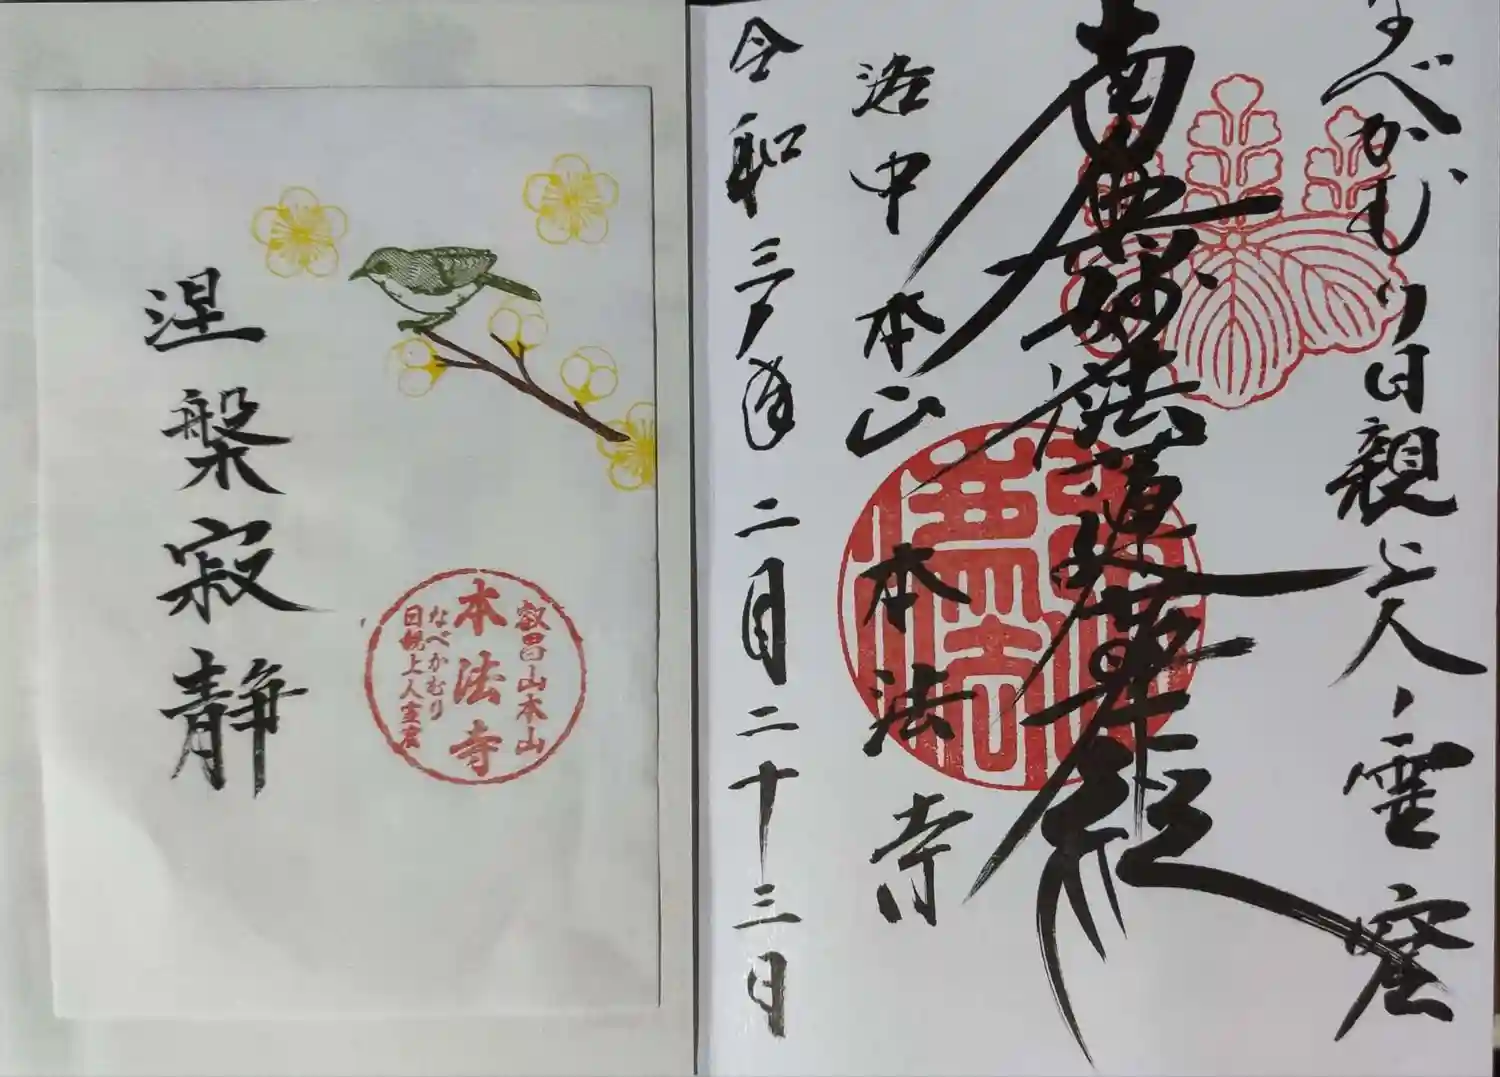 涅槃寂静
叡昌山本山
本法寺
なべかむり
日親上人霊窟
なべかむり日親上人霊窟
南無妙法蓮華経
洛中本山本法寺
令和三年二月二十三日